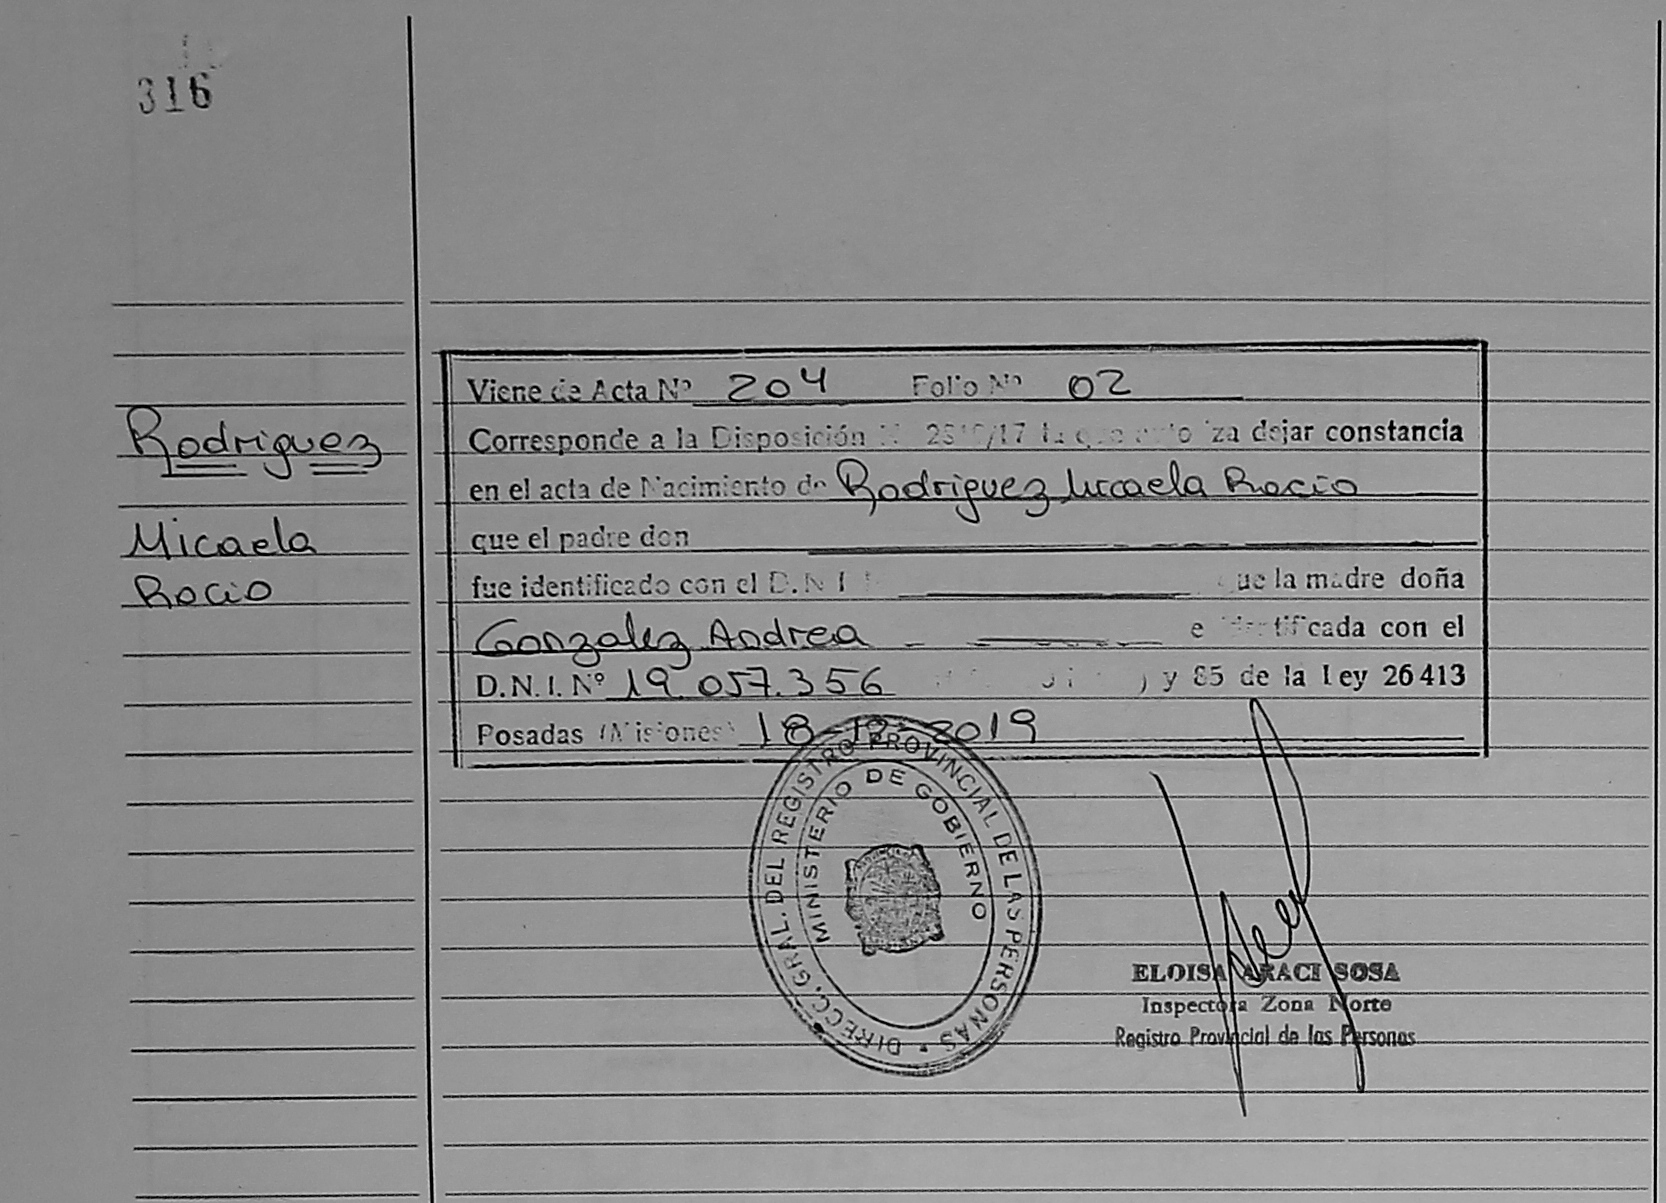 316
Rodriguez
Micaela
Rocio
Viene de Acta Nº 204 Folio Nº 02
Corresponde a la Disposición /17 la que iza dejar constancia
en el acta de Nacimiento de Rodriguez Micaela Rocio
que el padre don
fue identificado con el D.N.I que la madre doña
Gonzalez Andrea identificada con el
D.N.I. Nº 19.057.356 y 85 de la Ley 26413
Posadas (Misiones) 18-12-2019
DIRECC. GRAL. DEL REGISTRO PROVINCIAL DE LAS PERSONAS
MINISTERIO DE GOBIERNO
ELOISA ARACI SOSA
Inspectora Zona Norte
Registro Provincial de las Personas